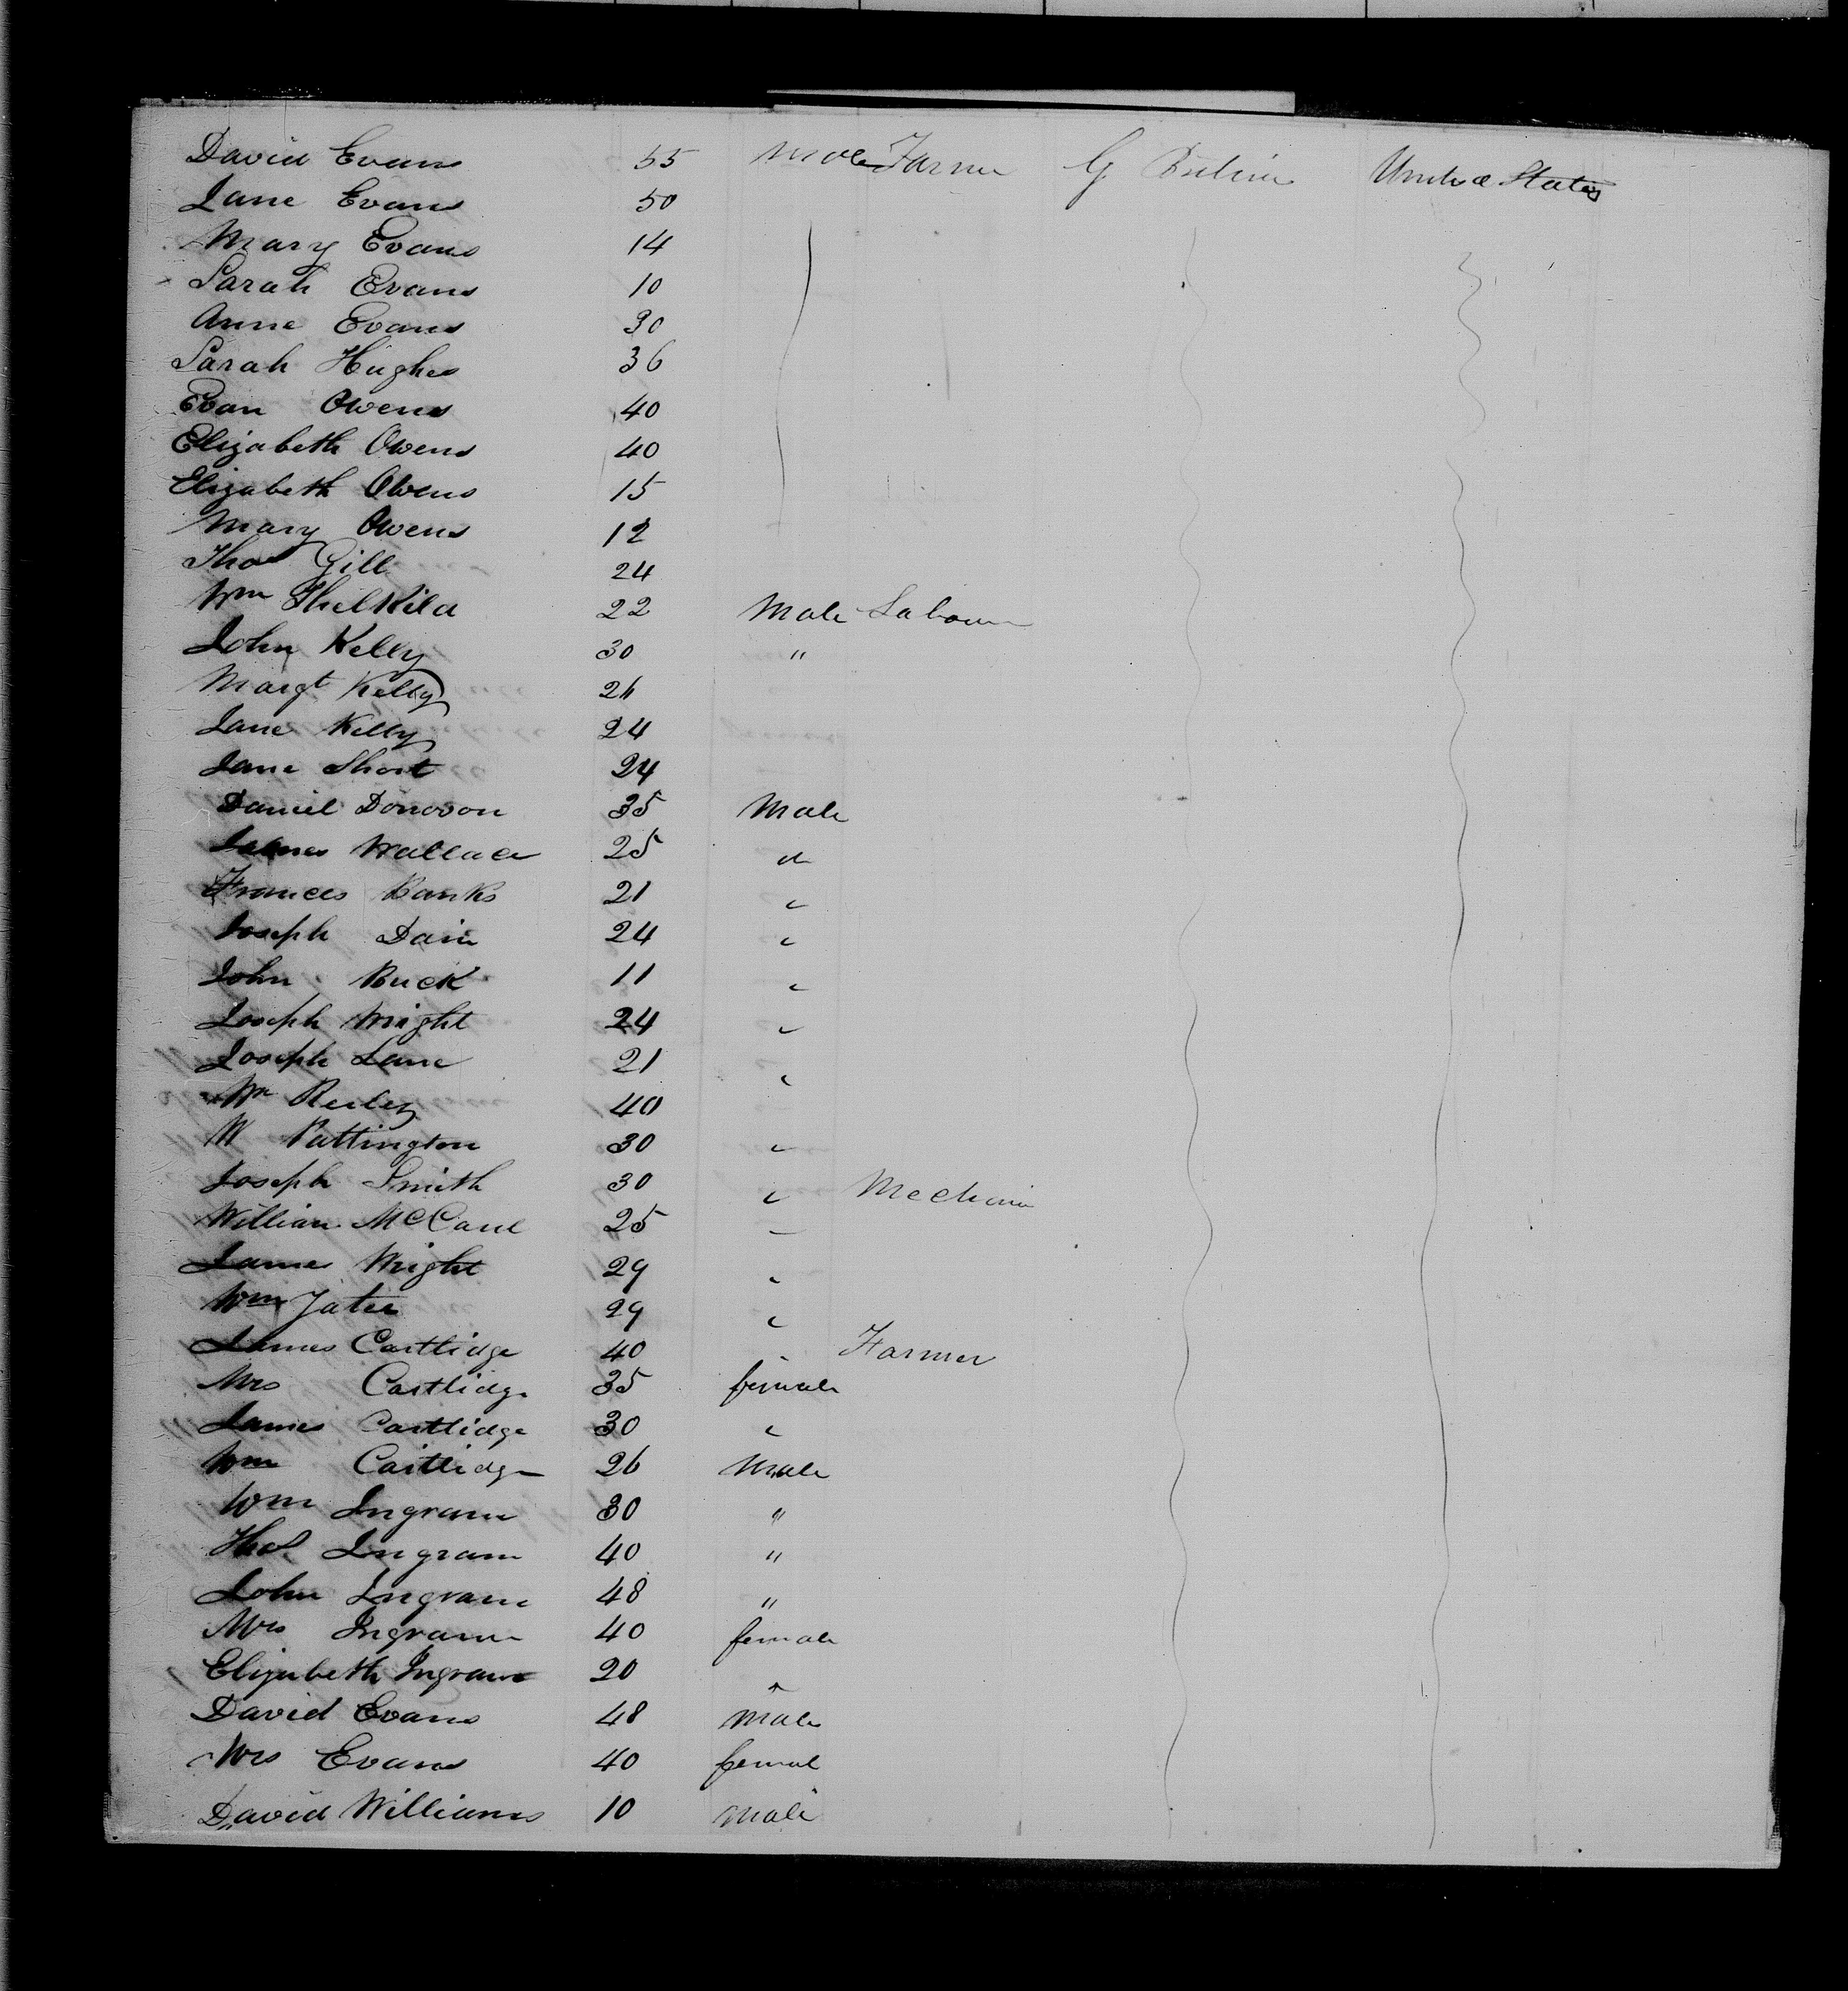 David Evans 55 Male Farmer G Britain United States
Jane Evans 50
Mary Evans 14
Sarah Evans 10
Anne Evans 30
Sarah Hughes 36
Evan Owens 40
Elizabeth Owens 40
Elizabeth Owens 15
Mary Owens 12
Thos Gill 24
Wm Thelkild 22 Male Labour
John Kelly 30 "
Margt Kelly 26
Jane Kelly 24
Jane Short 24
Daniel Donovon 35 Male
James Wallace 25 "
Frances Banks 21 "
Joseph 24 "
John Buck 11 "
Joseph Wright 24 "
Joseph Lane 21 "
Wm 40
W Pattington 30 "
Joseph Smith 30 " Mechanic
William McCane 25 "
James Wright 29 "
Wm Yates 29 "
James Cartlidge 40 " Farmer
Mrs Cartlidge 35 female
James Cartlidge 30 "
Wm Cartlidge 26 Male
Wm Ingram 30 "
Thos. Ingram 40 "
John Ingram 48 "
Mrs Ingram 40 female
Elizabeth Ingram 20 "
David Evans 48 Male
Mrs Evans 40 female
David Williams 10 Male